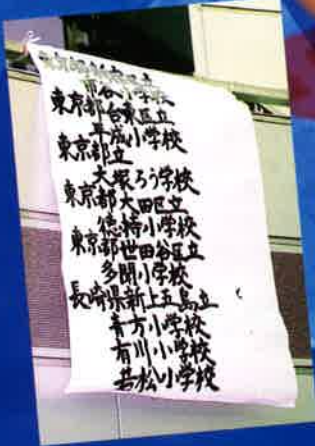 東京都新宿区立
市谷小学校
東京都台東区立
平成小学校
東京都立
大塚ろう学校
東京都大田区立
徳持小学校
東京都世田谷区立
多聞小学校
長崎県新上五島立
青方小学校
有川小学校
若松小学校